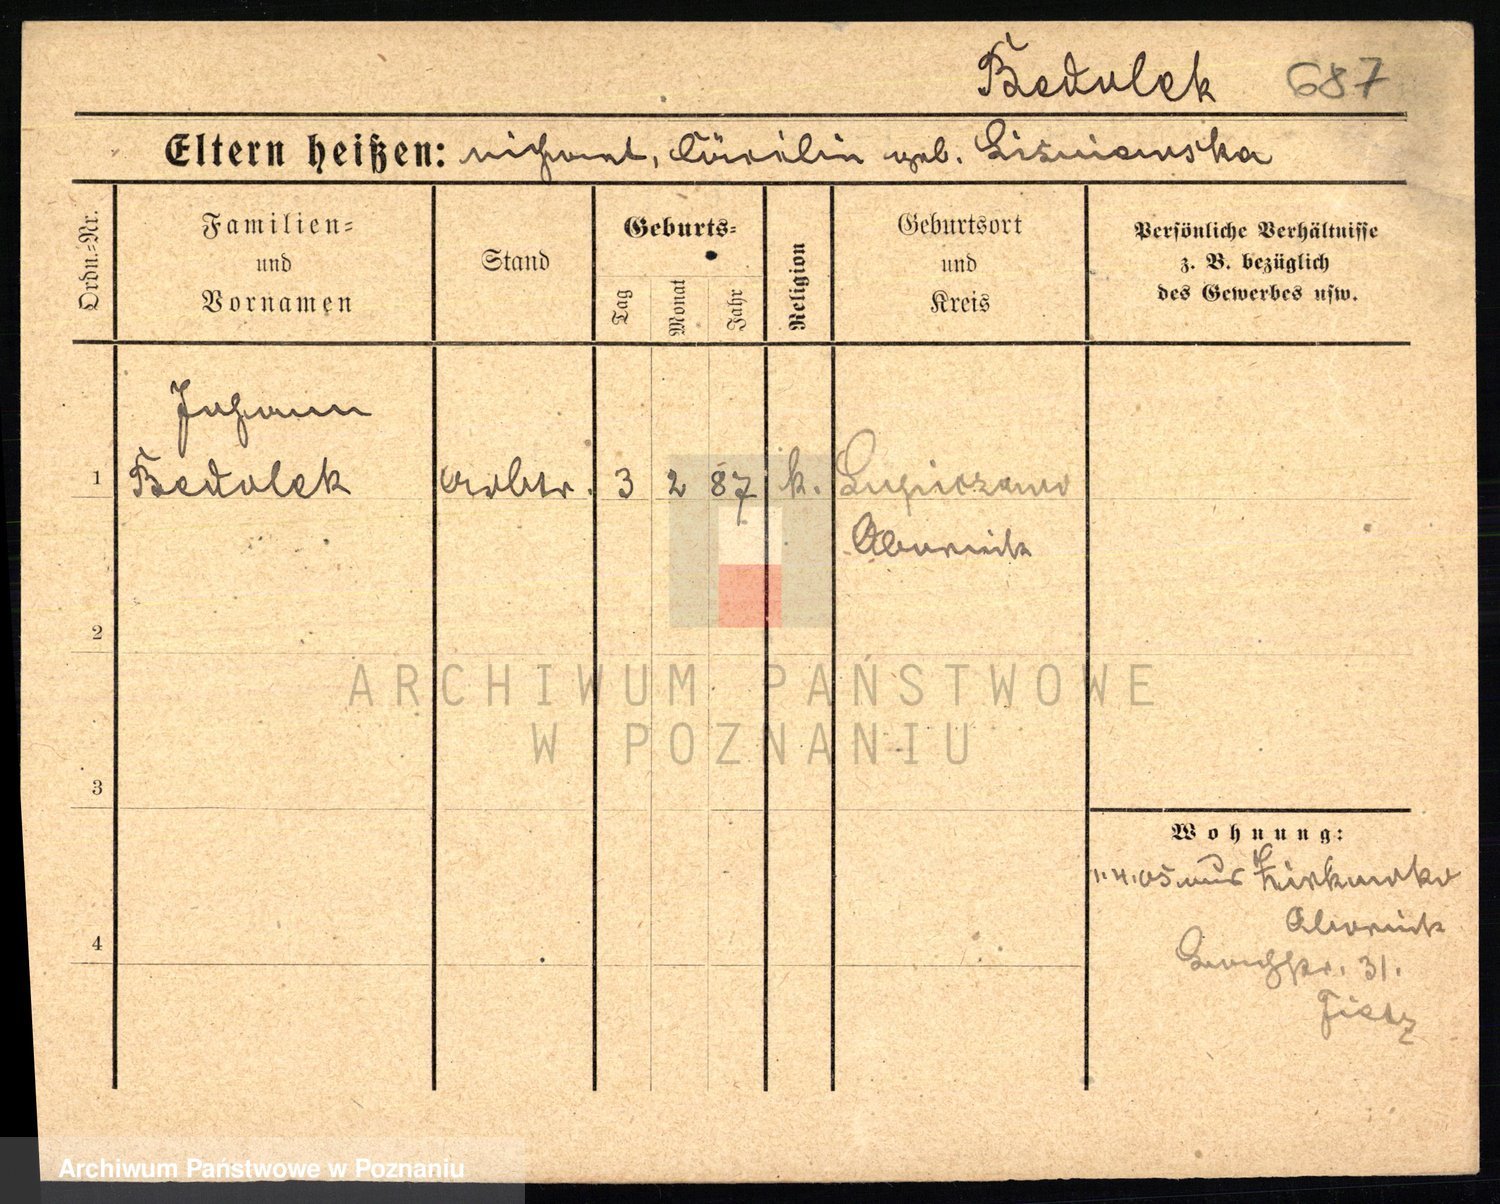 Bedolek 687
Eltern heißen: geb. Lisniewska
Ordn.=Nr.
Familien=
und
Vornamen
Stand
Geburts=
Tag
Monat
Jahr
Religion
Geburtsort
und
Kreis
Persönliche Verhältnisse
z. B. bezüglich
des Gewerbes usw.
Johann
1 Bedolek Arbtr. 3 2 87 k.
Obornik
2
3
4
Wohnung:
1.4.05 aus
Obornik
31.
Tietz
ARCHIWUM PAŃSTWOWE
W POZNANIU
Archiwum Państwowe w Poznaniu